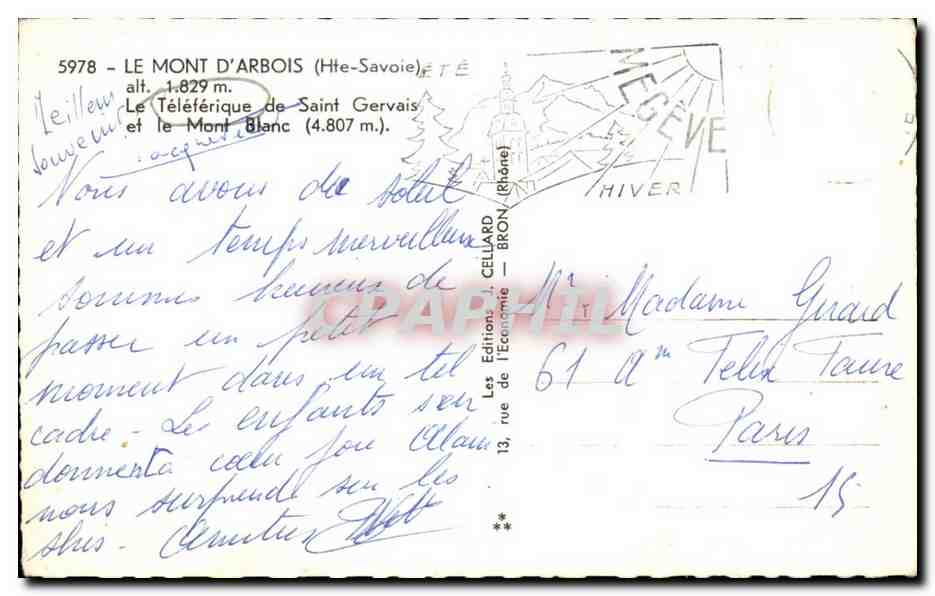 5978 - LE MONT D'ARBOIS (Hte-Savoie)
alt. 1.829 m.
Le Téléférique de Saint Gervais
et le Mont Blanc (4.807 m.).
Meilleurs
souvenirs
ÉTÉ
MEGÈVE
HIVER
Nous avons du soleil
et un temps merveilleux
sommes heureux de
passer un petit
moment dans un tel
cadre - Les enfants s'en
donnent à cœur joie Alain
nous surprend sur les
skis - Amitiés
Les Editions J. CELLARD
13, rue de l'Economie — BRON (Rhône)
CPAPHIL
Mr Madame Girard
61 Felix Faure
Paris
15